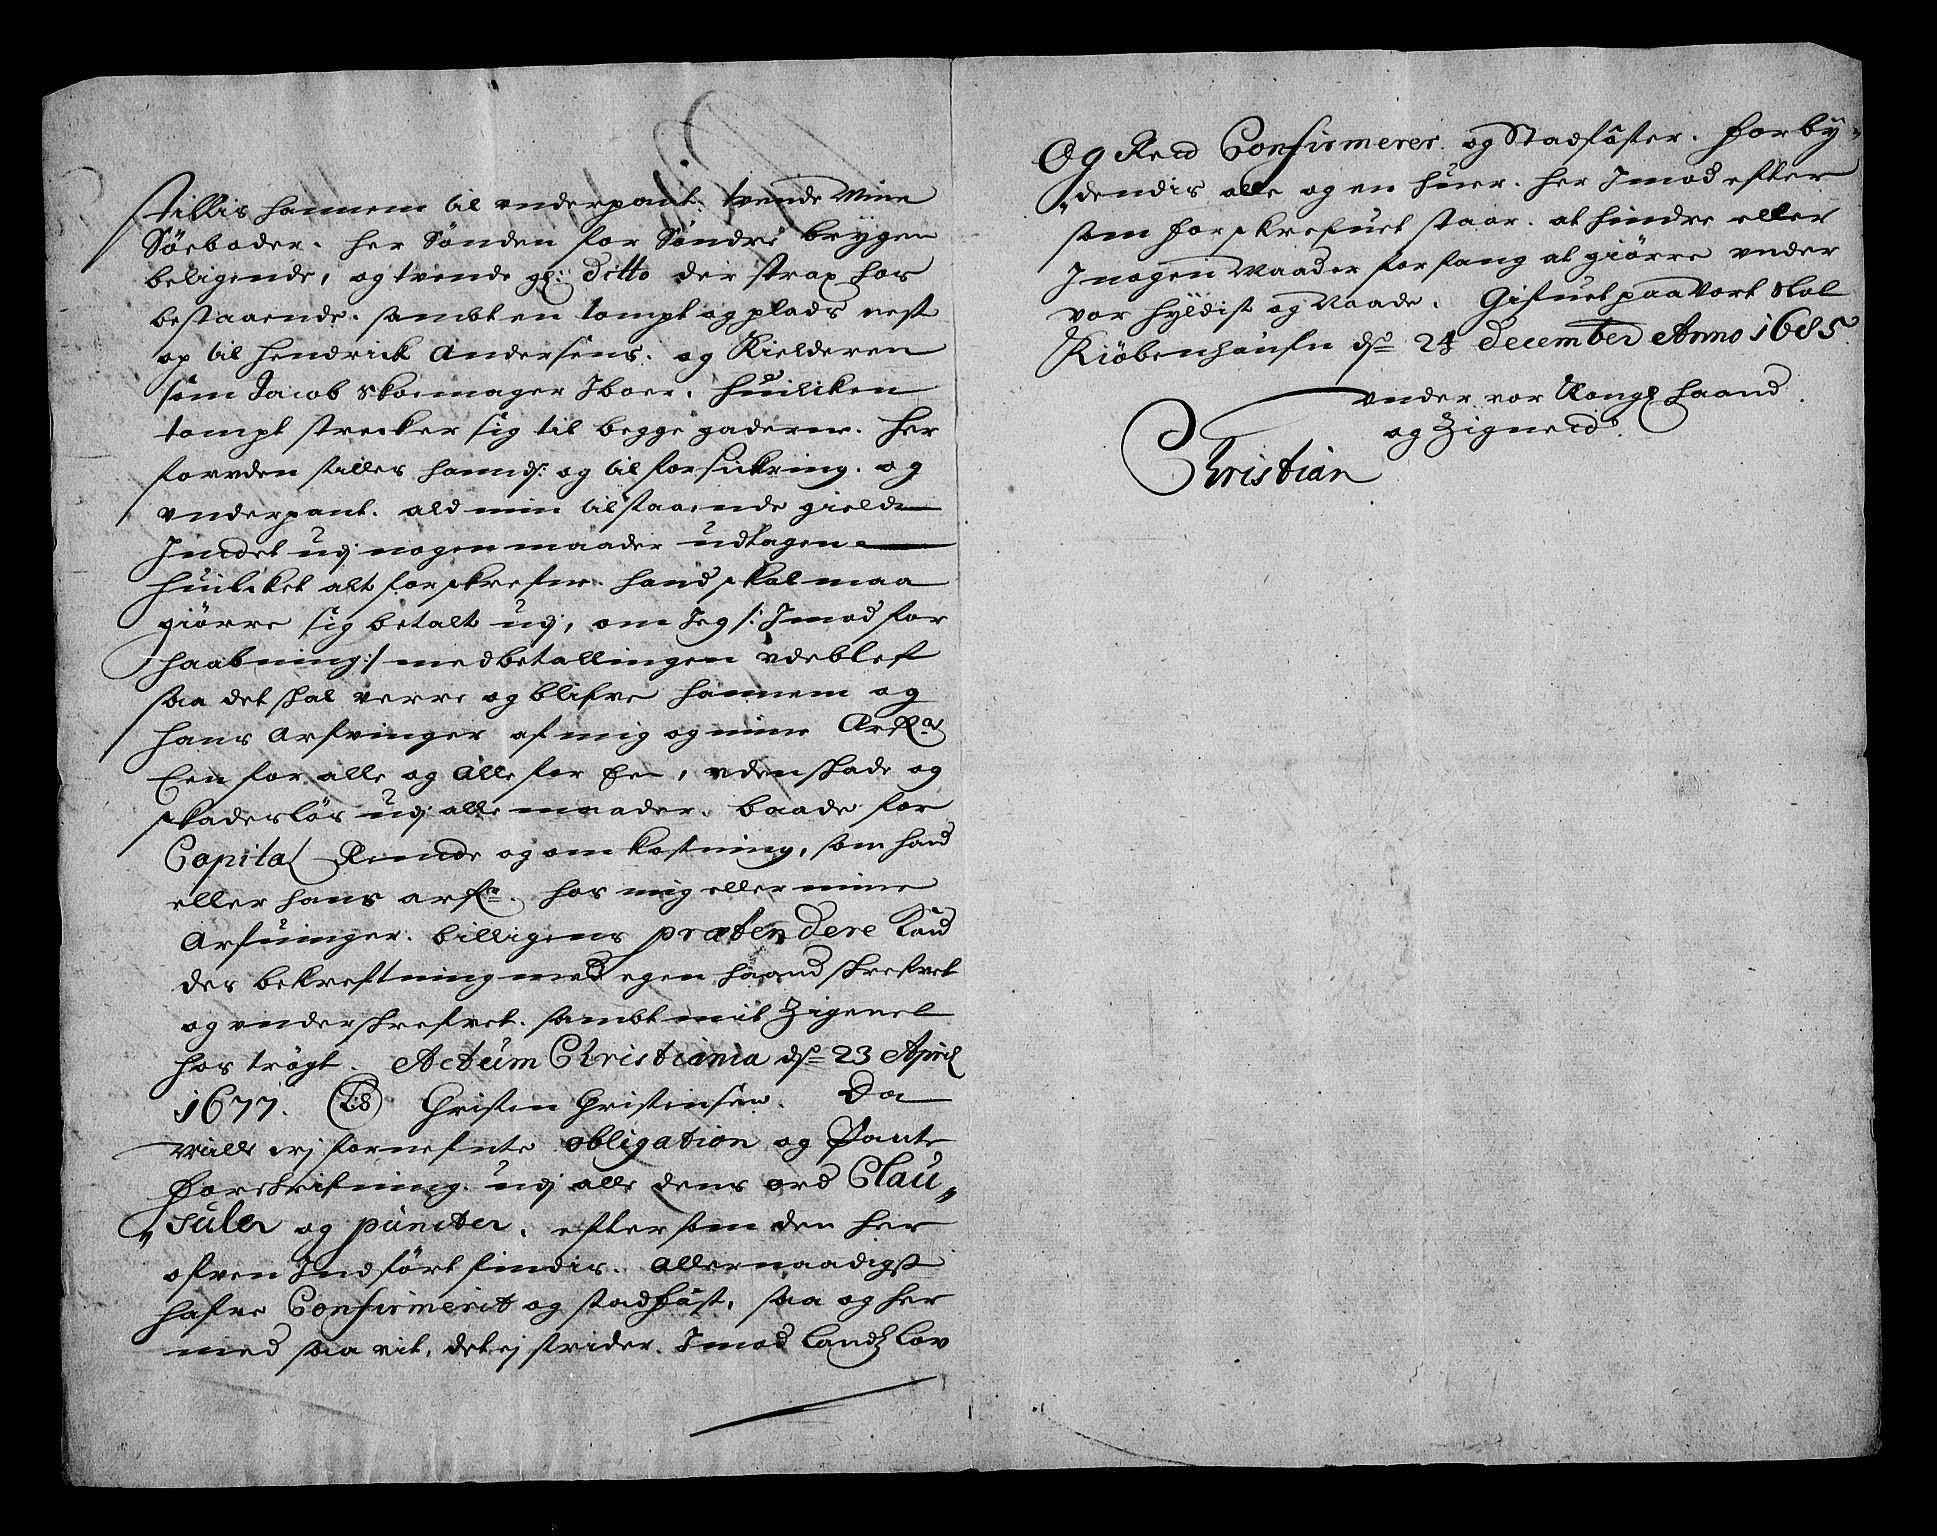 stillis hannem til underpant. tvende Mine
Søeboder. her Sønden for Søndre brygen
beligende, og tvende gl: ditto der strax hos
bestaaende. sambt en tompt og plads nest
op til Hendrick Andersens. og Kielderen
som Jacob Skoemager Iboer. huilcken
tompt strecker sig til begge gaderne. Her
foruden stilles hannds: og til forsickring. og
underpant. ald min tilstaaende gield
Indet udj nogen maader udtagen
huilcket alt forskrefne. hand skal maa
giörre sig betalt udj, om Jeg /: Imod for
haabning :/ med betallingen udeblef
saa det skal verre og blifve hannem og
hans Arfvinger af mig og mine Arf:
Een for alle og alle for Een, uden skade og
skadeslös udj alle maader. baade for
Capital Rennde og omkostning, som hand
eller hans arf: hos mig eller mine
Arfuinger. billigens prætendere Kand
des bekreftning med egen haand skrefvet
og underskrefvet. sambt mit Zigenet
hos trögt. Actum Christiania ds 23 April
1677. (L:S) Christen Christensen. Da
Ville vj fornefnte obligation og Pante
forskrifning. udj alle dens ord Clau„
„suler og puncter, eftersom den her
ofven Indfört findis. allernaadigst
hafve Confirmerit og stadfäst, saa og her
med saa vit, det ej strider. Imod Landz Lov
Og Rett Confirmerer og Stadfäster. forby„
„dendis alle og en huer. her Imod efter
som forskrefuet staar. at hindre eller
I nogen Maader forfang at giörre under
vor hyldist og Naade. Gifuet paa Vort Slot
Kiöbenhaufn ds 24 december Anno 1685.
under vor Kongl haand
og Zignet.
Christian